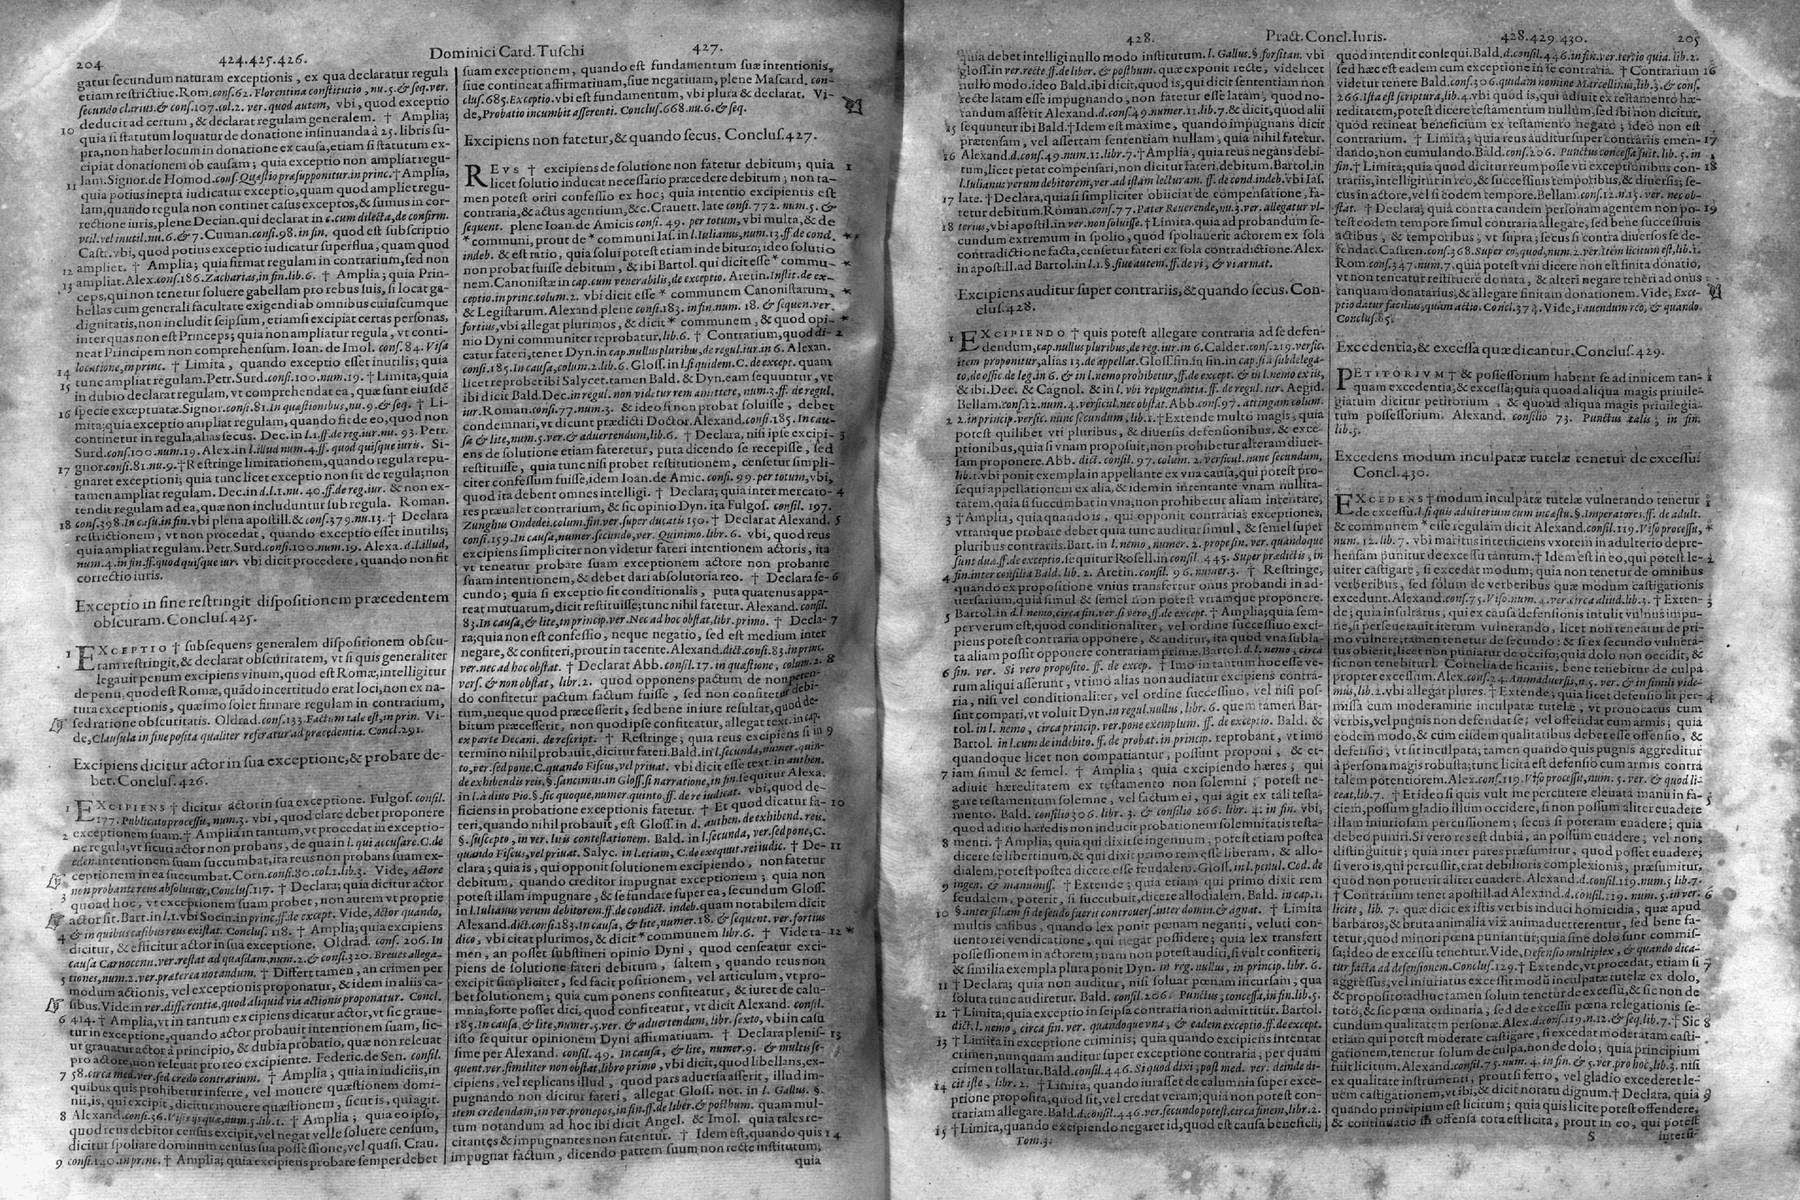 204 424.425.426. Dominici Card. Tuschi 427.
gatur secundum naturam exceptionis, ex qua declaratur regula
etiam restrictiue. Rom. cons. 62. Florentina constitutio, nu. 5. & seq. ver.
secundo clarius. & cons. 107. col. 2. ver. quod autem, vbi, quod exceptio
deducit ad certum, & declarat regulam generalem. † Amplia;
10 quia si statutum loquatur de donatione insinuanda à 25. libris su-
pra, non habet locum in donatione ex causa, etiam si statutum ex-
cipiat donationem ob causam; quia exceptio non ampliat regu-
11 lam. Signor. de Homod. cons. Quæstio præsupponitur. in princ. † Amplia,
quia potius inepta iudicatur exceptio, quam quod ampliet regu-
lam, quando regula non continet casus exceptos, & sumus in cor-
rectione iuris, plene Decian. qui declarat in c. cum dilecta, de confirm.
vtil. vel inutil. nu. 6. & 7. Cuman. cons. 98. in fin. quod est subscriptio
Cast. vbi, quod potius exceptio iudicatur superflua, quam quod
12 ampliet. † Amplia; quia firmat regulam in contrarium, sed non
13 ampliat. Alex. cons. 186. Zacharias, in fin. lib. 6. † Amplia; quia Prin-
ceps, qui non tenetur soluere gabellam pro rebus suis, si locat ga-
bellas cum generali facultate exigendi ab omnibus cuiuscumque
dignitatis, non includit seipsum, etiamsi excipiat certas personas,
inter quas non est Princeps; quia non ampliatur regula, vt conti-
neat Principem non comprehensum. Ioan. de Imol. cons. 84. Visa
14 locatione, in princ. † Limita, quando exceptio esset inutilis; quia
15 tunc ampliat regulam. Petr. Surd. cons. 100. num. 19. † Limita; quia
in dubio declarat regulam, vt comprehendat ea, quæ sunt eiusdē
16 speciei exceptuatæ. Signor. cons. 81. In quæstionibus, nu. 9. & seq. † Li-
mita; quia exceptio ampliat regulam, quando fit de eo, quod non
continetur in regula, alias secus. Dec. in l. 1. ff. de reg. iur. nu. 93. Petr.
Surd. cons. 100. num. 19. Alex. in l. illud num. 4. ff. quod quisque iuris. Si-
17 gnor. cons. 81. nu. 9. † Restringe limitationem, quando regula repu-
gnaret exceptioni; quia tunc licet exceptio non sit de regula; non
tamen ampliat regulam. Dec. in d. l. 1. nu. 40. ff. de reg. iur. & non ex-
tendit regulam ad ea, quæ non includuntur sub regula. Roman.
18 cons. 398. In casu. in fin. vbi plena apostill. & cons. 379. nu. 13. † Declara
restrictionem, vt non procedat, quando exceptio esset inutilis;
quia ampliat regulam. Petr. Surd. cons. 100. num. 19. Alexa. d. l. illud,
num. 4. in fin. ff. quod quisque iur. vbi dicit procedere, quando non fit
correctio iuris.
Exceptio in fine restringit dispositionem præcedentem
obscuram. Conclus. 425.
1 EXCEPTIO † subsequens generalem dispositionem obscu-
ram restringit, & declarat obscuritatem, vt si quis generaliter
legauit penum excipiens vinum, quod est Romæ, intelligitur
de penu, quod est Romæ, quādo incertitudo erat loci, non ex na-
tura exceptionis, quæ imo solet firmare regulam in contrarium,
sed ratione obscuritatis. Oldrad. cons. 133. Factum tale est, in prin. Vi-
de, Clausula in fine posita qualiter referatur ad præcedentia. Concl. 291.
Excipiens dicitur actor in sua exceptione, & probare de-
bet. Conclus. 426.
1 EXCIPIENS † dicitur actor in sua exceptione. Fulgos. consil.
177. Publicato processu, num. 3. vbi, quod clare debet proponere
2 exceptionem suam. † Amplia in tantum, vt procedat in exceptio-
ne regula, vt sicut actor non probans, de qua in l. qui accusare. C. de
eden. intentionem suam succumbat, ita reus non probans suam ex-
ceptionem in ea succumbat. Corn. cons. 80. col. 2. lib. 3. Vide, Actore
non probante reus absoluitur, Conclus. 117. † Declara; quia dicitur actor
3 quoad hoc, vt exceptionem suam probet, non autem vt proprie
actor sit. Bart. in l. 1. vbi Socin. in princ. ff. de except. Vide, Actor quando,
4 & in quibus casibus reus existat. Conclus. 118. † Amplia; quia excipiens
dicitur, & efficitur actor in sua exceptione. Oldrad. cons. 206. In
causa Carnocenn. ver. restat ad quasdam, num. 2. & cons. 320. Breues allega-
5 tiones, num. 2. ver. præterea notandum. † Differt tamen, an crimen per
modum actionis, vel exceptionis proponatur, & idem in aliis ca-
sibus. Vide in ver. differentiæ, quod aliquid via actionis proponatur. Concl.
6 414. † Amplia, vt in tantum excipiens dicatur actor, vt sic graue-
tur in exceptione, quando actor probauit intentionem suam, sic-
ut grauatur actor à principio, & dubia probatio, quæ non releuat
pro actore, non releuat pro reo excipiente. Federic. de Sen. consil.
7 58. circa med. ver. sed credo contrarium. † Amplia; quia in iudiciis, in
quibus quis prohibetur inferre, vel mouere quæstionem domi-
nii, is, qui excipit, dicitur mouere quæstionem, sicut is, qui agit.
8 Alexand. cons. 36. Visis ijs quæ, num. 5. lib. 1. † Amplia; quia eo ipso,
quod reus debitor census excipit, vel negat velle soluere censum,
dicitur spoliare dominum census sua possessione, vel quasi. Crau.
9 cons. 140. in princ. † Amplia; quia excipiens probare semper debet
suam exceptionem, quando est fundamentum suæ intentionis,
siue contineat affirmatiuam, siue negatiuam, plene Mascard. con-
clus. 685. Exceptio. vbi est fundamentum, vbi plura & declarat. Vi-
de, Probatio incumbit asserenti. Conclus. 668. nu. 6. & seq.
Excipiens non fatetur, & quando secus. Conclus. 427.
REVS † excipiens de solutione non fatetur debitum; quia 1
licet solutio inducat necessario præcedere debitum; non ta-
men potest oriri confessio ex hoc; quia intentio excipientis est
contraria, & actus agentium, &c. Crauett. late cons. 772. num. 5. &
sequent. plene Ioan. de Amicis cons. 49. per totum, vbi multa, & de
* communi, prout de * communi Ias. in l. Iulianus, num. 13. ff. de cond. *
indeb. & est ratio, quia solui potest etiam indebitum; ideo solutio
non probat fuisse debitum, & ibi Bartol. qui dicit esse * commu- *
nem. Canonistæ in cap. cum venerabilis, de exceptio. Aretin. Instit. de ex-
ceptio. in princ. colum. 2. vbi dicit esse * communem Canonistarum, *
& Legistarum. Alexand. plene consil. 183. in fin. num. 18. & sequen. ver.
fortius, vbi allegat plurimos, & dicit * communem, & quod opi- *
nio Dyni communiter reprobatur, lib. 6. † Contrarium, quod di- 2
catur fateri, tenet Dyn. in cap. nullus pluribus, de regul. iur. in 6. Alexan.
cons. 185. In causa, colum. 2. lib. 6. Gloss. in l. si quidem. C. de except. quam
licet reprobet ibi Salycet. tamen Bald. & Dyn. eam sequuntur, vt
ibi dicit Bald. Dec. in regul. non videtur rem amittere, num. 3. ff. de regul.
iur. Roman. cons. 77. num. 3. & ideo si non probat soluisse, debet
condemnari, vt dicunt prædicti Doctor. Alexand. cons. 185. In cau-
sa & lite, num. 5. ver. & aduertendum, lib. 6. † Declara, nisi ipse excipi- 3
ens de solutione etiam fateretur, puta dicendo se recepisse, sed
restituisse, quia tunc nisi probet restitutionem, censetur simpli-
citer confessum fuisse, idem Ioan. de Amic. cons. 99. per totum, vbi,
quod ita debent omnes intelligi. † Declara; quia inter mercato- 4
res præualet contrarium, & sic opinio Dyn. ita Fulgos. consil. 197.
Zunghus Ondedei. colum. fin. ver. super ducatis 150. † Declarat Alexand. 5
cons. 159. In causa, numer. secundo, ver. Quinimo. libr. 6. vbi, quod reus
excipiens simpliciter non videtur fateri intentionem actoris, ita
vt teneatur probare suam exceptionem actore non probante
suam intentionem, & debet dari absolutoria reo. † Declara se- 6
cundo; quia si exceptio sit conditionalis, puta quatenus appa-
reat mutuatum, dicit restituisse; tunc nihil fatetur. Alexand. consil.
83. In causa, & lite, in princip. ver. Nec ad hoc obstat, libr. primo. † Decla- 7
ra; quia non est confessio, neque negatio, sed est medium inter
negare, & confiteri, prout in tacente. Alexand. dict. cons. 83. in princ.
ver. nec ad hoc obstat. † Declarat Abb. consil. 17. in quæstione, colum. 2. 8
vers. & non obstat, libr. 2. quod opponens pactum de non peten-
do confitetur pactum factum fuisse, sed non confitetur debi-
tum, neque quod præcesserit, sed bene in iure resultat, quod de-
bitum præcesserit, non quod ipse confiteatur, allegat text. in cap.
ex parte Decani. de rescript. † Restringe; quia reus excipiens si in 9
termino nihil probauit, dicitur fateri. Bald. in l. secunda, numer. quin-
to, ver. sed pone. C. quando Fiscus, vel priuat. vbi dicit esse text. in authen.
de exhibendis reis, §. sancimus. in Gloss. si narratione, in fin. sequitur Alexa.
in l. à diuo Pio. §. sic quoque, numer. quinto, ff. de re iudicat. vbi, quod de-
ficiens in probatione exceptionis fatetur. † Et quod dicatur fa- 10
teri, quando nihil probauit, est Gloss. in d. authen. de exhibend. reis.
§. suscepto, in ver. lucis contestationem. Bald. in l. secunda, ver. sed pone, C.
quando Fiscus, vel priuat. Salyc. in l. etiam, C. de exequut. rei iudic. † De- 11
clara; quia is, qui opponit solutionem excipiendo, non fatetur
debitum, quando creditor impugnat exceptionem; quia non
potest illam impugnare, & se fundare super ea, secundum Gloss.
in l. Iulianus verum debitorem. ff. de condict. indeb. quam notabilem dicit
Alexand. dict. cons. 183. In causa, & lite, numer. 18. & sequent. ver. fortius
dico, vbi citat plurimos, & dicit * communem libr. 6. † Vide ta- 12 *
men, an posset substineri opinio Dyni, quod censeatur exci-
piens de solutione fateri debitum, saltem, quando reus non
excipit simpliciter, sed facit positionem, vel articulum, vt pro-
bet solutionem; quia cum ponens confiteatur, & iuret de calu-
mnia, forte posset dici, quod confiteatur, vt dicit Alexand. consil.
185. In causa, & lite, numer. 5. ver. & aduertendum, libr. sexto, vbi in casu
isto sequitur opinionem Dyni affirmatiuam. † Declara plenis- 13
sime per Alexand. consil. 49. In causa, & lite, numer. 9. & multis se-
quent. ver. similiter non obstat, libro primo, vbi dicit, quod libellans, ex-
cipiens, vel replicans illud, quod pars aduersa asserit, illud im-
pugnando non dicitur fateri, allegat Gloss. not. in l. Gallus. §.
item credendam, in ver. pronepos, in fin. ff. de liber. & posthum. quam mul-
tum notandam ad hoc ibi dicit Angel. & Imol. quia tales re-
citantes & impugnantes non fatentur. † Idem est, quando quis 14
impugnat factum, dicendo patrem suum non recte institutum;
quia
428. Pract. Concl. Iuris. 428.429.430. 205
quia debet intelligi nullo modo institutum. l. Gallus. §. forsitan. vbi
gloss. in ver. recte. ff. de liber. & posthum. quæ exponit recte, videlicet
nullo modo. ideo Bald. ibi dicit, quod is, qui dicit sententiam non
recte latam esse impugnando, non fatetur esse latam, quod no-
tandum asserit Alexand. d. cons. 49. numer. 11. lib. 7. & dicit, quod alii
15 sequuntur ibi Bald. † Idem est maxime, quando impugnans dicit
prætensam, vel assertam sententiam nullam; quia nihil fatetur.
16 Alexand. d. cons. 49. num. 12. libr. 7. † Amplia, quia reus negans debi-
tum, licet petat compensari, non dicitur fateri, debitum. Bartol. in
l. Iulianus verum debitorem, ver. ad istam lecturam. ff. de cond. indeb. vbi Ias.
17 late. † Declara, quia si simpliciter obiiciat de compensatione, fa-
tetur debitum. Roman. cons. 77. Pater Reuerende, nu. 3. ver. allegatur vl-
18 terius, vbi apostil. in ver. non soluisse. † Limita. quia ad probandum se-
cundum extremum in spolio, quod spoliauerit actorem ex sola
contradictione facta, censetur fateri ex sola contradictione. Alex.
in apostil. ad Bartol. in l. 1. §. siue autem. ff. de vi, & vi armat.
Excipiens auditur super contrariis, & quando secus. Con-
clus. 428.
1 EXCIPIENDO † quis potest allegare contraria ad se defen-
dendum, cap. nullus pluribus, de reg. iur. in 6. Calder. cons. 219. versic.
item proponitur, alias 13. de appellat. Gloss. fin. in fin. cap. si à subdelega-
to, de offic. de leg. in 6. & in l. nemo prohibetur, ff. de except. & in l. nemo ex iis,
& ibi. Dec. & Cagnol. & in l. vbi repugnantia. ff. de regul. iur. Aegid.
Bellam. cons. 12. num. 4. versicul. nec obstat. Abb. cons. 97. attingam colum.
2 2. in princip. versic. nunc secundum, lib. 1. † Extende multo magis; quia
potest quilibet vti pluribus, & diuersis defensionibus. & exce-
ptionibus, quia si vnam proponit, non prohibetur alteram diuer-
sam proponere. Abb. dict. consil. 97. colum. 2. versicul. nunc secundum,
lib. 1. vbi ponit exempla in appellante ex vna causa, qui potest pro-
sequi appellationem ex alia, & idem in intentante vnam nullita-
tem, quia si succumbat in vna, non prohibetur aliam intentare,
3 † Amplia, quia quando is, qui opponit contrarias exceptiones,
vtramque probare debet quia tunc auditur simul, & semel super
pluribus contrariis. Bart. in l. nemo, numer. 2. prope fin. ver. quandoque
sunt dua. ff. de exceptio. sequitur Rosell. in consil. 445. Super prædictis, in
4 fin. inter consilia Bald. lib. 2. Aretin. consil. 96. numer. 3. † Restringe,
quando ex propositione vnius transfertur onus probandi in ad-
uersarium, quia simul & semel non potest vtramque proponere.
5 Bartol. in d. l. nemo, circa fin. ver. si vero, ff. de except. † Amplia; quia sem-
per verum est, quod conditionaliter, vel ordine successiuo exci-
piens potest contraria opponere, & auditur, ita quod vna subla-
ta aliam possit opponere contrariam primæ. Bartol. d. l. nemo, circa
6 fin. ver. Si vero proposito. ff. de excep. † Imo in tantum hoc esse ve-
rum aliqui asserunt, vt imo alias non audiatur excipiens contra-
ria, nisi vel conditionaliter, vel ordine successiuo, vel nisi pos-
sint compati, vt voluit Dyn. in regul. nullus, libr. 6. quem tamen Bar-
tol. in l. nemo, circa princip. ver. pone exemplum. ff. de exceptio. Bald. &
Bartol. in l. cum de indebito. ff. de probat. in princip. reprobant, vt imo
quandoque licet non compatiantur, possunt proponi, & et-
7 iam simul & semel. † Amplia; quia excipiendo hæres, qui
adiuit hæreditatem ex testamento non solemni; potest ne-
gare testamentum solemne, vel factum ei, qui agit ex tali testa-
mento. Bald. consil. 306. libr. 3. & consil. 266. libr. 41. in fin. vbi,
quod aditio hæredis non inducit probationem solemnitatis testa-
8 menti. † Amplia; quia qui dixit se ingenuum, potest etiam postea
dicere se libertinum, & qui dixit primo rem esse liberam, & allo-
dialem, potest postea dicere esse feudalem. Gloss. in l. penul. Cod. de
9 ingen. & manumiss. † Extende; quia etiam qui primo dixit rem
feudalem, poterit, si succubuit, dicere allodialem. Bald. in cap. 1.
10 §. inter filiam. si de feudo fuerit controuers. inter domin. & agnat. † Limita
multis casibus, quando lex ponit pœnam neganti, veluti con-
uento rei vendicatione, qui negat possidere; quia lex transfert
possessionem in actorem; nam non potest audiri, si vult confiteri;
& similia exempla plura ponit Dyn. in reg. nullus, in princip. lib. 6.
11 † Declara; quia non auditur, nisi soluat pœnam incursam, qua
soluta tunc audiretur. Bald. consil. 206. Punctus; concessa, in fin. lib. 5.
12 † Limita; quia exceptio in seipsa contraria non admittitur. Bartol.
dict. l. nemo, circa fin. ver. quandoque vna, & eadem exceptio. ff. de except.
13 † Limita in exceptione criminis; quia quando excipiens intentat
crimen, nunquam auditur super exceptione contraria, per quam
crimen tollatur. Bald. cons. 446. Si quod dixi; post med. ver. deinde di-
14 cit iste, libr. 2. † Limita; quando iurasset de calumnia super exce-
ptione proposita, quod sit, vel credat veram; quia non potest con-
trariam allegare. Bald. d. cons. 446. ver. secundo potest. circa finem, libr. 2.
15 † Limita, quando excipiendo negaret id, quod est causa beneficii;
Tom. 3.
quod intendit consequi. Bald. d. consil. 446. in fin. ver. tertio quia. lib. 2.
sed hæc est eadem cum exceptione in se contraria. † Contrarium 16
videtur tenere Bald. cons. 306. quidam nomine Marcellinus, lib. 3. & cons.
266. Ista est scriptura, lib. 4. vbi quod is, qui adiuit ex testamento hæ-
reditatem, potest dicere testamentum nullum, sed ibi non dicitur,
quod retineat beneficium ex testamento negato; ideo non est
contrarium. † Limita; quia reus auditur super contrariis emen- 17
dando, non cumulando. Bald. cons. 206. Punctus concessa fuit. lib. 5. in
fin. † Limita; quia quod dicitur reum posse vti exceptionibus con- 18
trariis, intelligitur in eo, & successiuis temporibus, & diuersis; se-
cus in actore, vel si eodem tempore. Bellam. cons. 12. n. 15. ver. nec ob-
stat. † Declara; quia contra eandem personam agentem non po- 19
test eodem tempore simul contraria allegare, sed bene successiuis
actibus, & temporibus, vt supra; secus si contra diuersos se de-
fendat. Castren. cons. 368. Super eo, quod, num. 2. ver. Item licitum est, lib. 1.
Rom. cons. 347. num. 7. quia potest vni dicere non est finita donatio,
vt non teneatur restituere donata, & alteri negare teneri ad onus
tanquam donatarius, & allegare finitam donationem. Vide, Exce-
ptio datur facilius, quàm actio. Concl. 374. Vide, Fauendum reo, & quando.
Conclus. 85.
Excedentia, & excessa quæ dicantur. Conclus. 429.
PETITORIVM † & possessorium habent se ad inuicem tan- 1
quam excedentia, & excessa; quia quoad aliqua magis priuile-
giatum dicitur petitorium, & quoad aliqua magis priuilegia-
tum possessorium. Alexand. consilio 73. Punctus talis, in fin.
lib. 5.
Excedens modum inculpatæ tutelæ tenetur de excessu.
Concl. 430.
EXCEDENS † modum inculpatæ tutelæ vulnerando tenetur 1
de excessu. l. si quis adulterium cum incæstu. §. Imperatores. ff. de adult.
& communem * esse regulam dicit Alexand. consil. 119. Viso processu, *
num. 12. lib. 7. vbi maritus interficiens vxorem in adulterio depre-
hensam punitur de excessu tantum. † Idem est in eo, qui potest le- 2
uiter castigare, si excedat modum; quia non tenetur de omnibus
verberibus, sed solum de verberibus quæ modum castigationis
excedunt. Alexand. cons. 75. Viso. num. 4. ver. circa aliud. lib. 3. † Exten- 3
de; quia insultatus, qui ex causa defensionis intulit vulnus impu-
ne, si perseuerauit iterum vulnerando, licet non teneatur de pri-
mo vulnere; tamen tenetur de secundo; & si ex secundo vulnera-
tus obierit, licet non puniatur de occiso; quia dolo non occidit, &
sic non tenebitur l. Cornelia de sicariis, bene tenebitur de culpa
propter excessum. Alex. cons. 24. Animaduersis, n. 5. ver. & in simili vide-
mus, lib. 2. vbi allegat plures. † Extende; quia licet defensio sit per- 4
missa cum moderamine inculpatæ tutelæ, vt prouocatus cum
verbis, vel pugnis non defendat se; vel offendat cum armis; quia
eodem modo, & cum eisdem qualitatibus debet esse offensio, &
defensio, vt sit inculpata; tamen quando quis pugnis aggreditur
à persona magis robusta; tunc licita est defensio cum armis contra
talem potentiorem. Alex. cons. 119. Viso processu, num. 5. ver. & quod li-
ceat, lib. 7. † Et ideo si quis vult me percutere eleuata manu in fa- 5
ciem, possum gladio illum occidere, si non possum aliter euadere
illam iniuriosam percussionem; secus si poteram euadere; quia
debeo puniri. Si vero res est dubia, an possum euadere; vel non;
distinguitur; quia inter pares præsumitur, quod posset euadere;
si vero is, qui percussit, erat debilioris complexionis, præsumitur,
quod non potuerit aliter euadere. Alexand. d. cons. 119. num. 5. lib. 7.
† Contrarium tenet apostill. ad Alexand. d. cons. 119. num. 5. in ver. 6
licite, lib. 7. quæ dicit ex istis verbis induci homicidia, quæ apud
barbaros, & bruta animalia vix animaduerterentur, sed bene fa-
tetur, quod minori pœna puniantur; quia sine dolo sunt commis-
sa; ideo de excessu tenentur. Vide, Defensio multiplex, & quando dica-
tur facta ad defensionem. Conclus. 129. † Extende, vt procedat, etiam si 7
aggressus, vel iniuriatus excessit modū inculpatæ tutelæ ex dolo,
& proposito adhuc tamen solum tenetur de excessu, & sic non de
toto; & sic pœna ordinaria; sed de excessu pœna relegationis se-
cundum qualitatem personæ. Alex. d. cons. 119. n. 12. & seq. lib. 7. † Sic 8
etiam qui potest moderate castigare, si excedat moderatam casti-
gationem, tenetur solum de culpa, non de dolo; quia principium
fuit licitum. Alexand. cons. 75. num. 4. in fin. & 5. ver. pro hoc, lib. 3. nisi
ex qualitate instrumenti, prout si ferro, vel gladio excederet le-
uem castigationem, vt ibi, & dicit notatu dignum. † Declara, quia 9
quando principium est licitum; quia quis licite potest offendere,
& continuatio in offensa tota est licita, prout in eo, qui potest
S interfi-